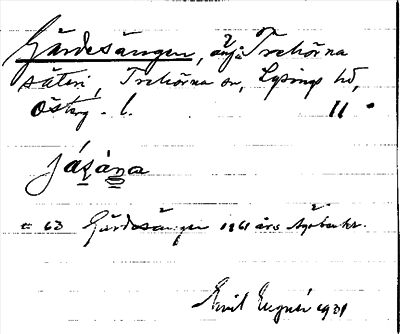 Gärdesängen, äng i Trehörna
säteri, Trehörna sn, Lysings hd,
Österg. l. 11
jáʒàna
= 63 Gärdesängen 1861 års Ägobeskr.
1931